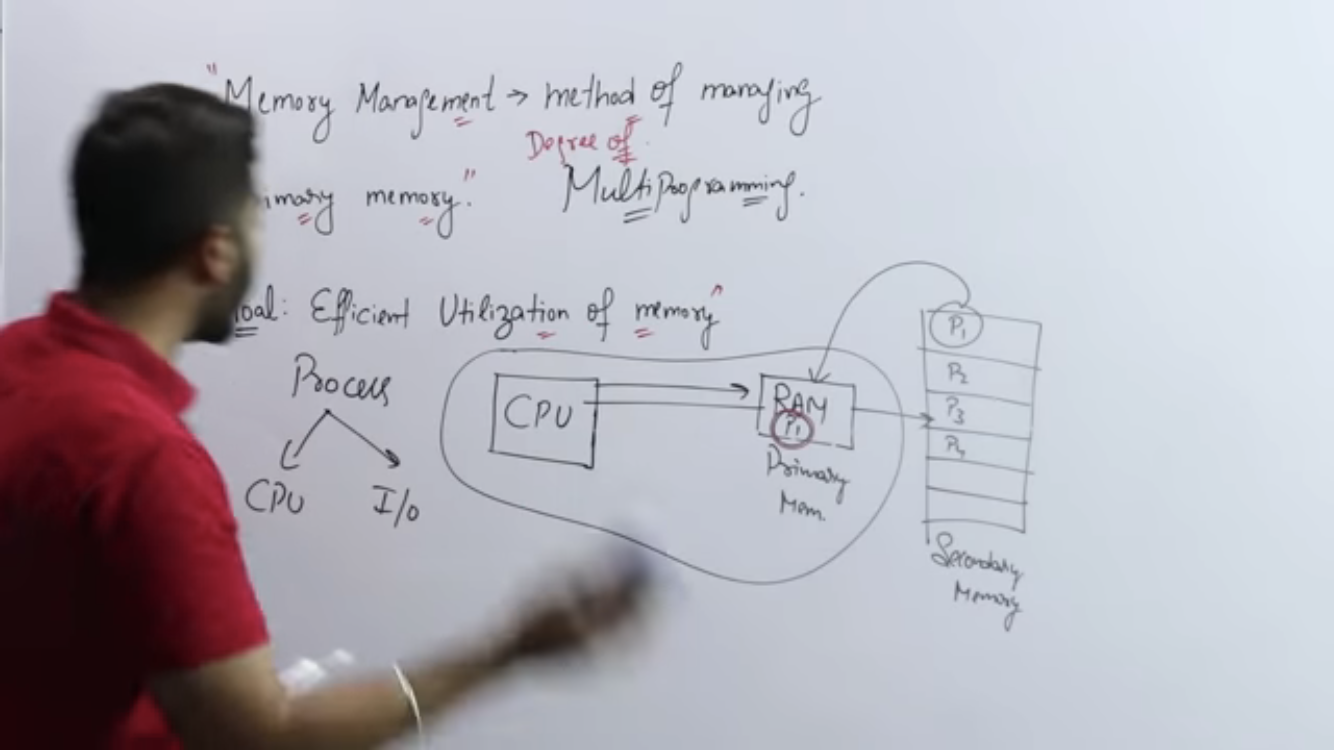 "Memory Management → method of managing
Degree of
imary memory." MultiProgramming.
oal: Efficient Utilization of memory"
Process
CPU I/O
CPU
RAM
P1
Primary
Mem.
P1
P2
P3
P4
Secondary
Memory